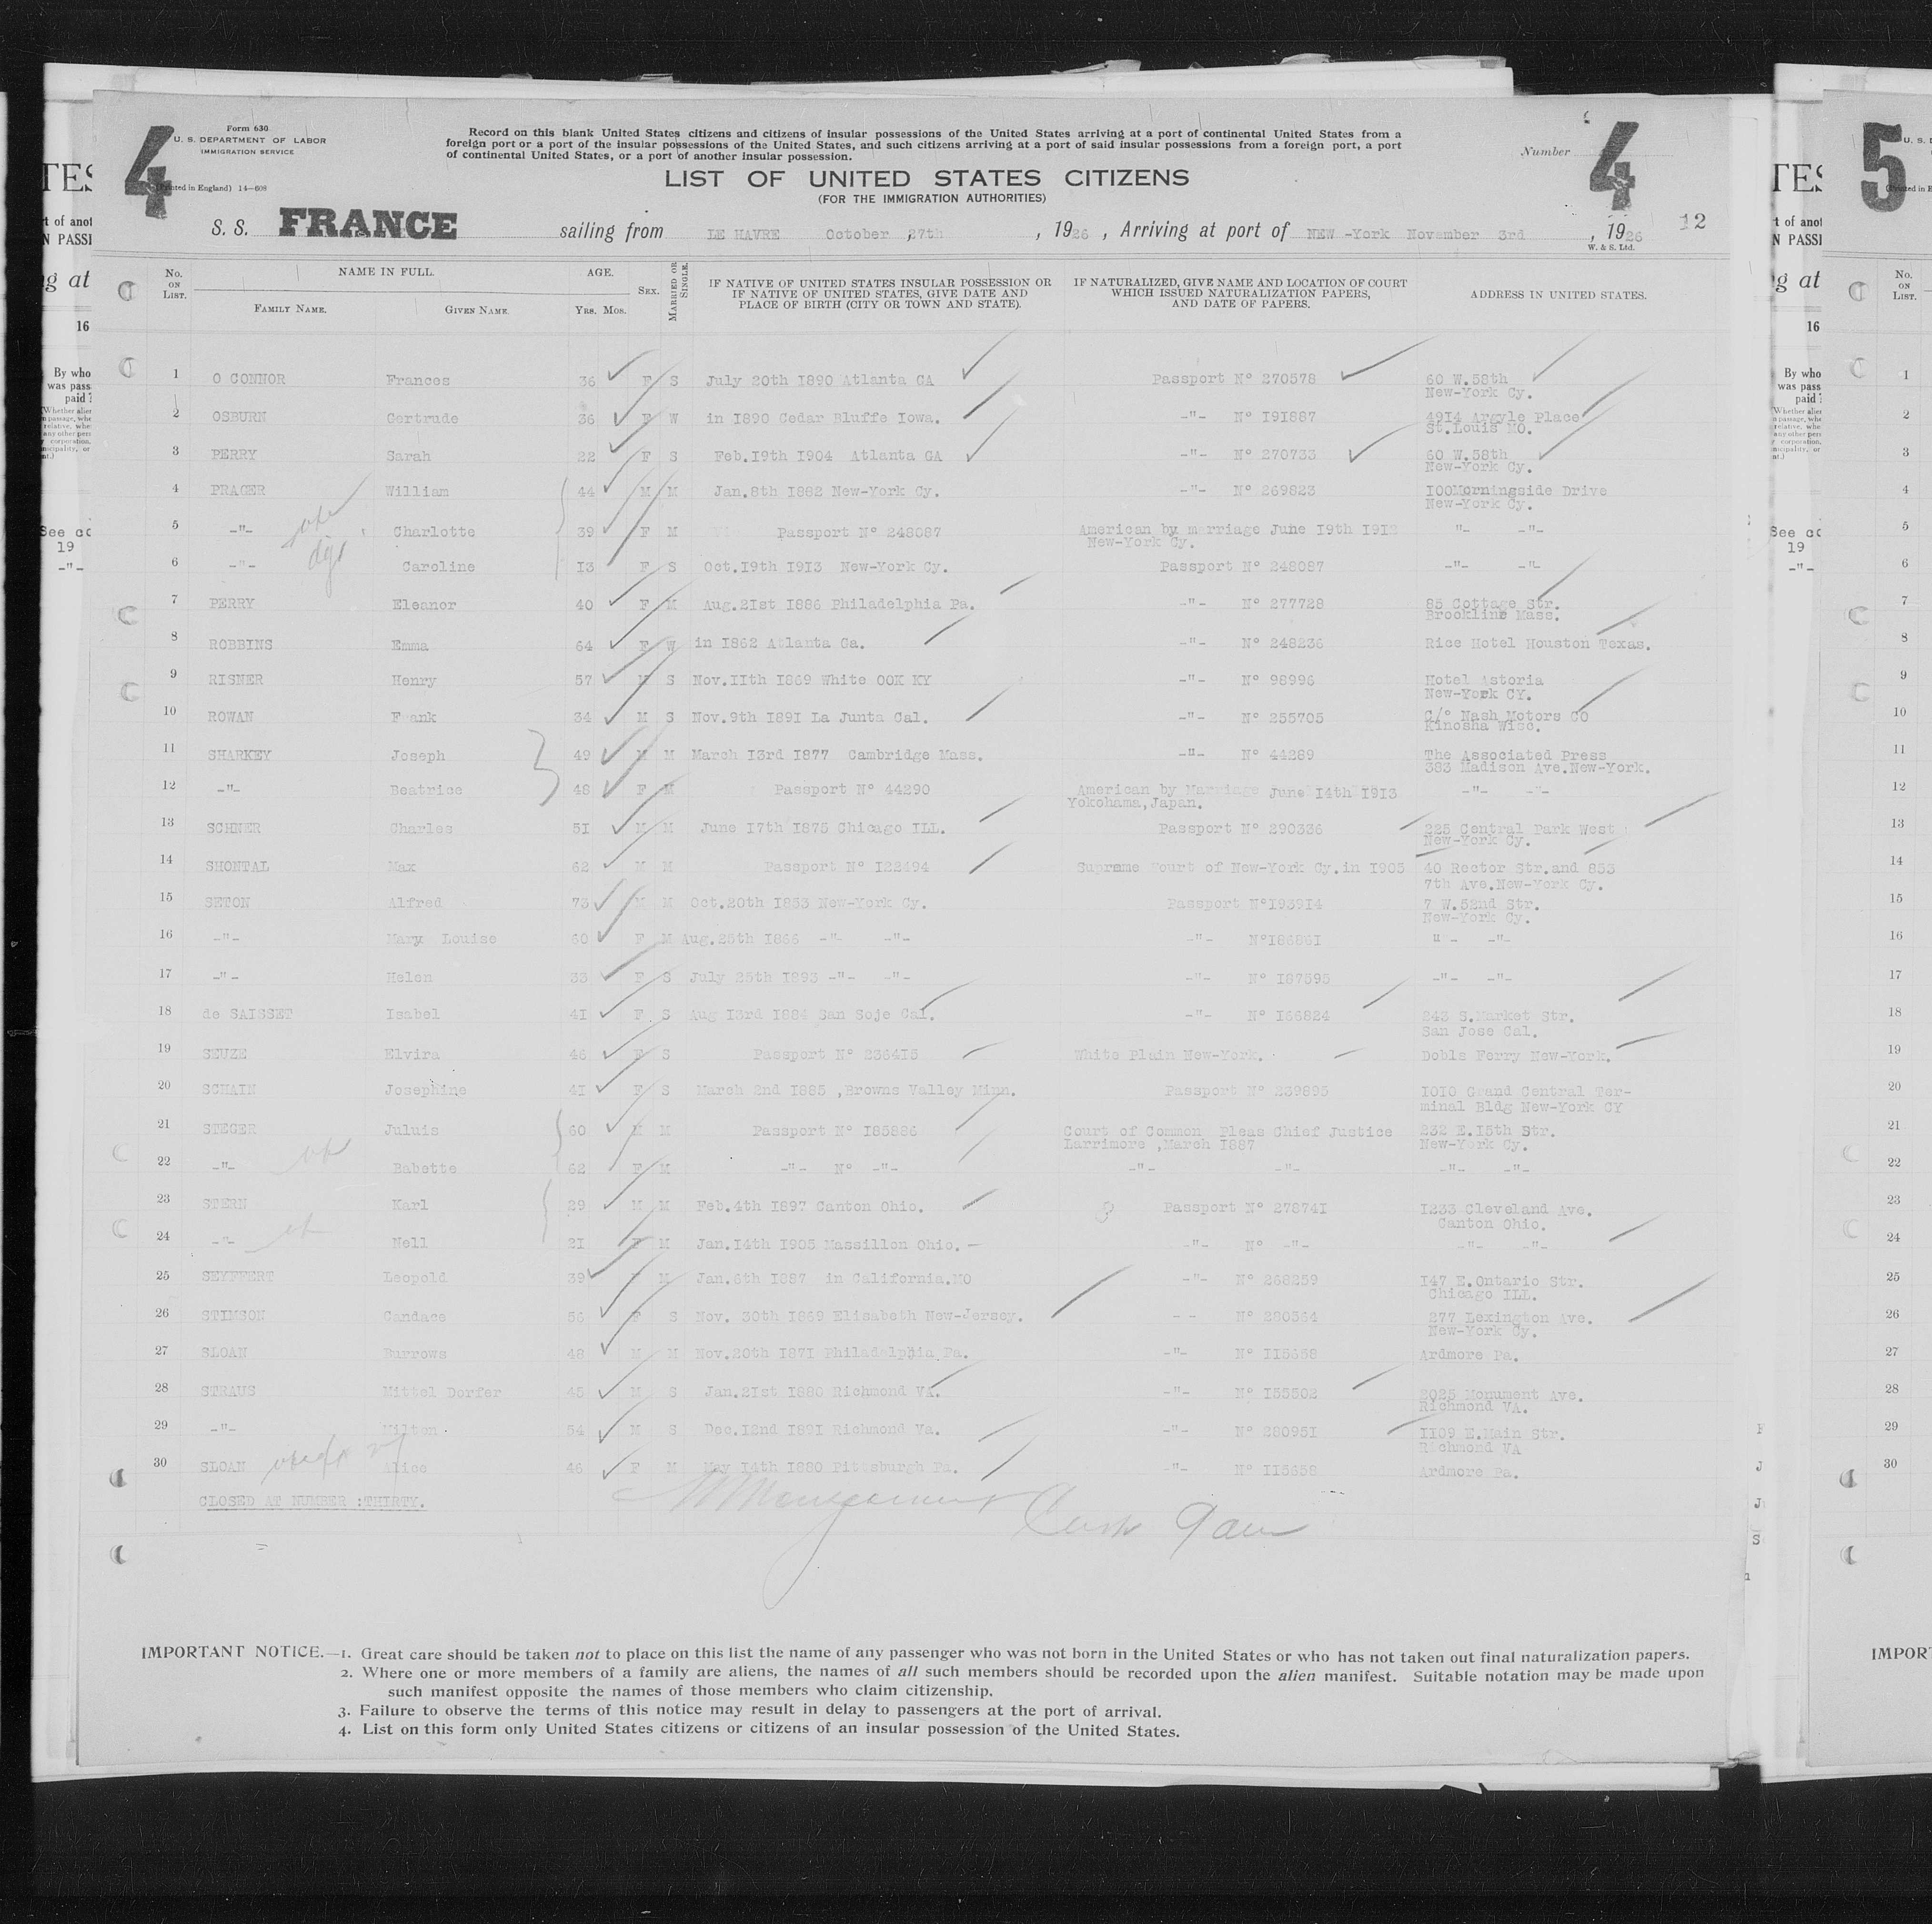 4
Form 630
U. S. DEPARTMENT OF LABOR
IMMIGRATION SERVICE
(Printed in England) 14—608
Record on this blank United States citizens and citizens of insular possessions of the United States arriving at a port of continental United States from a
foreign port or a port of the insular possessions of the United States, and such citizens arriving at a port of said insular possessions from a foreign port, a port
of continental United States, or a port of another insular possession.
Number 4
LIST OF UNITED STATES CITIZENS
(FOR THE IMMIGRATION AUTHORITIES)
S. S. FRANCE sailing from LE HAVRE October ,27th , 1926 , Arriving at port of NEW -York November 3rd , 1926 12
W. & S. Ltd.
No. ON LIST. NAME IN FULL. FAMILY NAME. GIVEN NAME. AGE. YRS. MOS. SEX. MARRIED OR SINGLE. IF NATIVE OF UNITED STATES INSULAR POSSESSION OR IF NATIVE OF UNITED STATES, GIVE DATE AND PLACE OF BIRTH (CITY OR TOWN AND STATE). IF NATURALIZED, GIVE NAME AND LOCATION OF COURT WHICH ISSUED NATURALIZATION PAPERS, AND DATE OF PAPERS. ADDRESS IN UNITED STATES.
1 O CONNOR Frances 36 F S July 20th I890 Atlanta GA Passport N° 270578 60 W.58th
New-York Cy.
2 OSBURN Gertrude 36 F W in I890 Cedar Bluffe Iowa. -"- N° I91887 49I4 Argyle Place
St.Louis MO.
3 PERRY Sarah 22 F S Feb.I9th I904 Atlanta GA -"- N° 270733 60 W.58th
New-York Cy.
4 PRAGER William 44 M M Jan.8th I882 New-York Cy. -"- N° 269823 I00Morningside Drive
New-York Cy.
5 -"- Charlotte 39 F M Passport N° 248087 American by marriage June I9th I9I2 "- -"-
New-York Cy.
6 -"- Caroline I3 F S Oct.I9th I9I3 New-York Cy. Passport N° 248087 -"- -"-
7 PERRY Eleanor 40 F M Aug.2Ist I886 Philadelphia Pa. -"- N° 277728 85 Cottage Str.
Brookline Mass.
8 ROBBINS Emma 64 F W in I862 Atlanta Ga. -"- N° 248236 Rice Hotel Houston Texas.
9 RISNER Henry 57 M S Nov.IIth I869 White OOK KY -"- N° 98996 Hotel Astoria
New-York CY.
10 ROWAN Frank 34 M S Nov.9th I89I La Junta Cal. -"- N° 255705 C/° Nash Motors CO
Kinosha Wisc.
11 SHARKEY Joseph 49 M M March I3rd I877 Cambridge Mass. -"- N° 44289 The Associated Press
383 Madison Ave.New-York.
12 -"- Beatrice 48 F M Passport N° 44290 American by Marriage June I4th I9I3 -"- -"-
Yokohama,Japan.
13 SCHNER Charles 5I M M June I7th I875 Chicago ILL. Passport N° 290336 225 Central Park West
New-York Cy.
14 SHONTAL Max 62 M M Passport N° I22494 Supreme Court of New-York Cy.in I905 40 Rector Str.and 853
7th Ave.New-York Cy.
15 SETON Alfred 73 M M Oct.20th I853 New-York Cy. Passport N°I939I4 7 W.52nd Str.
New-York Cy.
16 -"- Mary Louise 60 F M Aug.25th I866 -"- -"- -"- N°I8686I "- -"-
17 -"- Helen 33 F S July 25th I893 -"- -"- -"- N° I87595 -"- -"-
18 de SAISSET Isabel 4I F S Aug I3rd I884 San Soje Cal. -"- N° I66824 243 S.Market Str.
San Jose Cal.
19 SEUZE Elvira 46 F S Passport N° 2364I5 White Plain New-York. Dobls Ferry New-York.
20 SCHAIN Josephine 4I F S March 2nd I885 ,Browns Valley Minn. Passport N° 239895 I0I0 Grand Central Ter-
minal Bldg New-York CY
21 STEGER Juluis 60 M M Passport N° I85886 Court of Common Pleas Chief Justice 232 E.I5th Str.
Larrimore ,March I887 New-York Cy.
22 -"- Babette 62 F M -"- N° -"- -"- -"- -"- -"-
23 STERN Karl 29 M M Feb.4th I897 Canton Ohio. Passport N° 27874I I233 Cleveland Ave.
Canton Ohio.
24 -"- Nell 2I F M Jan.I4th I905 Massillon Ohio.- -"- N° -"- -"- -"-
25 SEYFFERT Leopold 39 M Jan.6th I887 in California.MO -"- N° 268259 I47 E.Ontario Str.
Chicago ILL.
26 STIMSON Candace 56 F S Nov. 30th I869 Elisabeth New-Jersey. - - N° 280564 277 Lexington Ave.
New-York Cy.
27 SLOAN Burrows 48 M M Nov.20th I87I Philadelphia Pa. -"- N° II5658 Ardmore Pa.
28 STRAUS Mittel Dorfer 45 M S Jan.2Ist I880 Richmond VA. -"- N° I55502 2025 Monument Ave.
Richmond VA.
29 -"- Milton 54 M S Dec.I2nd I89I Richmond Va. -"- N° 28095I II09 E.Main Str.
Richmond VA
30 SLOAN Alice 46 F M May I4th I880 Pittsburgh Pa. -"- N° II5658 Ardmore Pa.
CLOSED AT NUMBER :THIRTY.
IMPORTANT NOTICE.—1. Great care should be taken not to place on this list the name of any passenger who was not born in the United States or who has not taken out final naturalization papers.
2. Where one or more members of a family are aliens, the names of all such members should be recorded upon the alien manifest. Suitable notation may be made upon
such manifest opposite the names of those members who claim citizenship.
3. Failure to observe the terms of this notice may result in delay to passengers at the port of arrival.
4. List on this form only United States citizens or citizens of an insular possession of the United States.
5